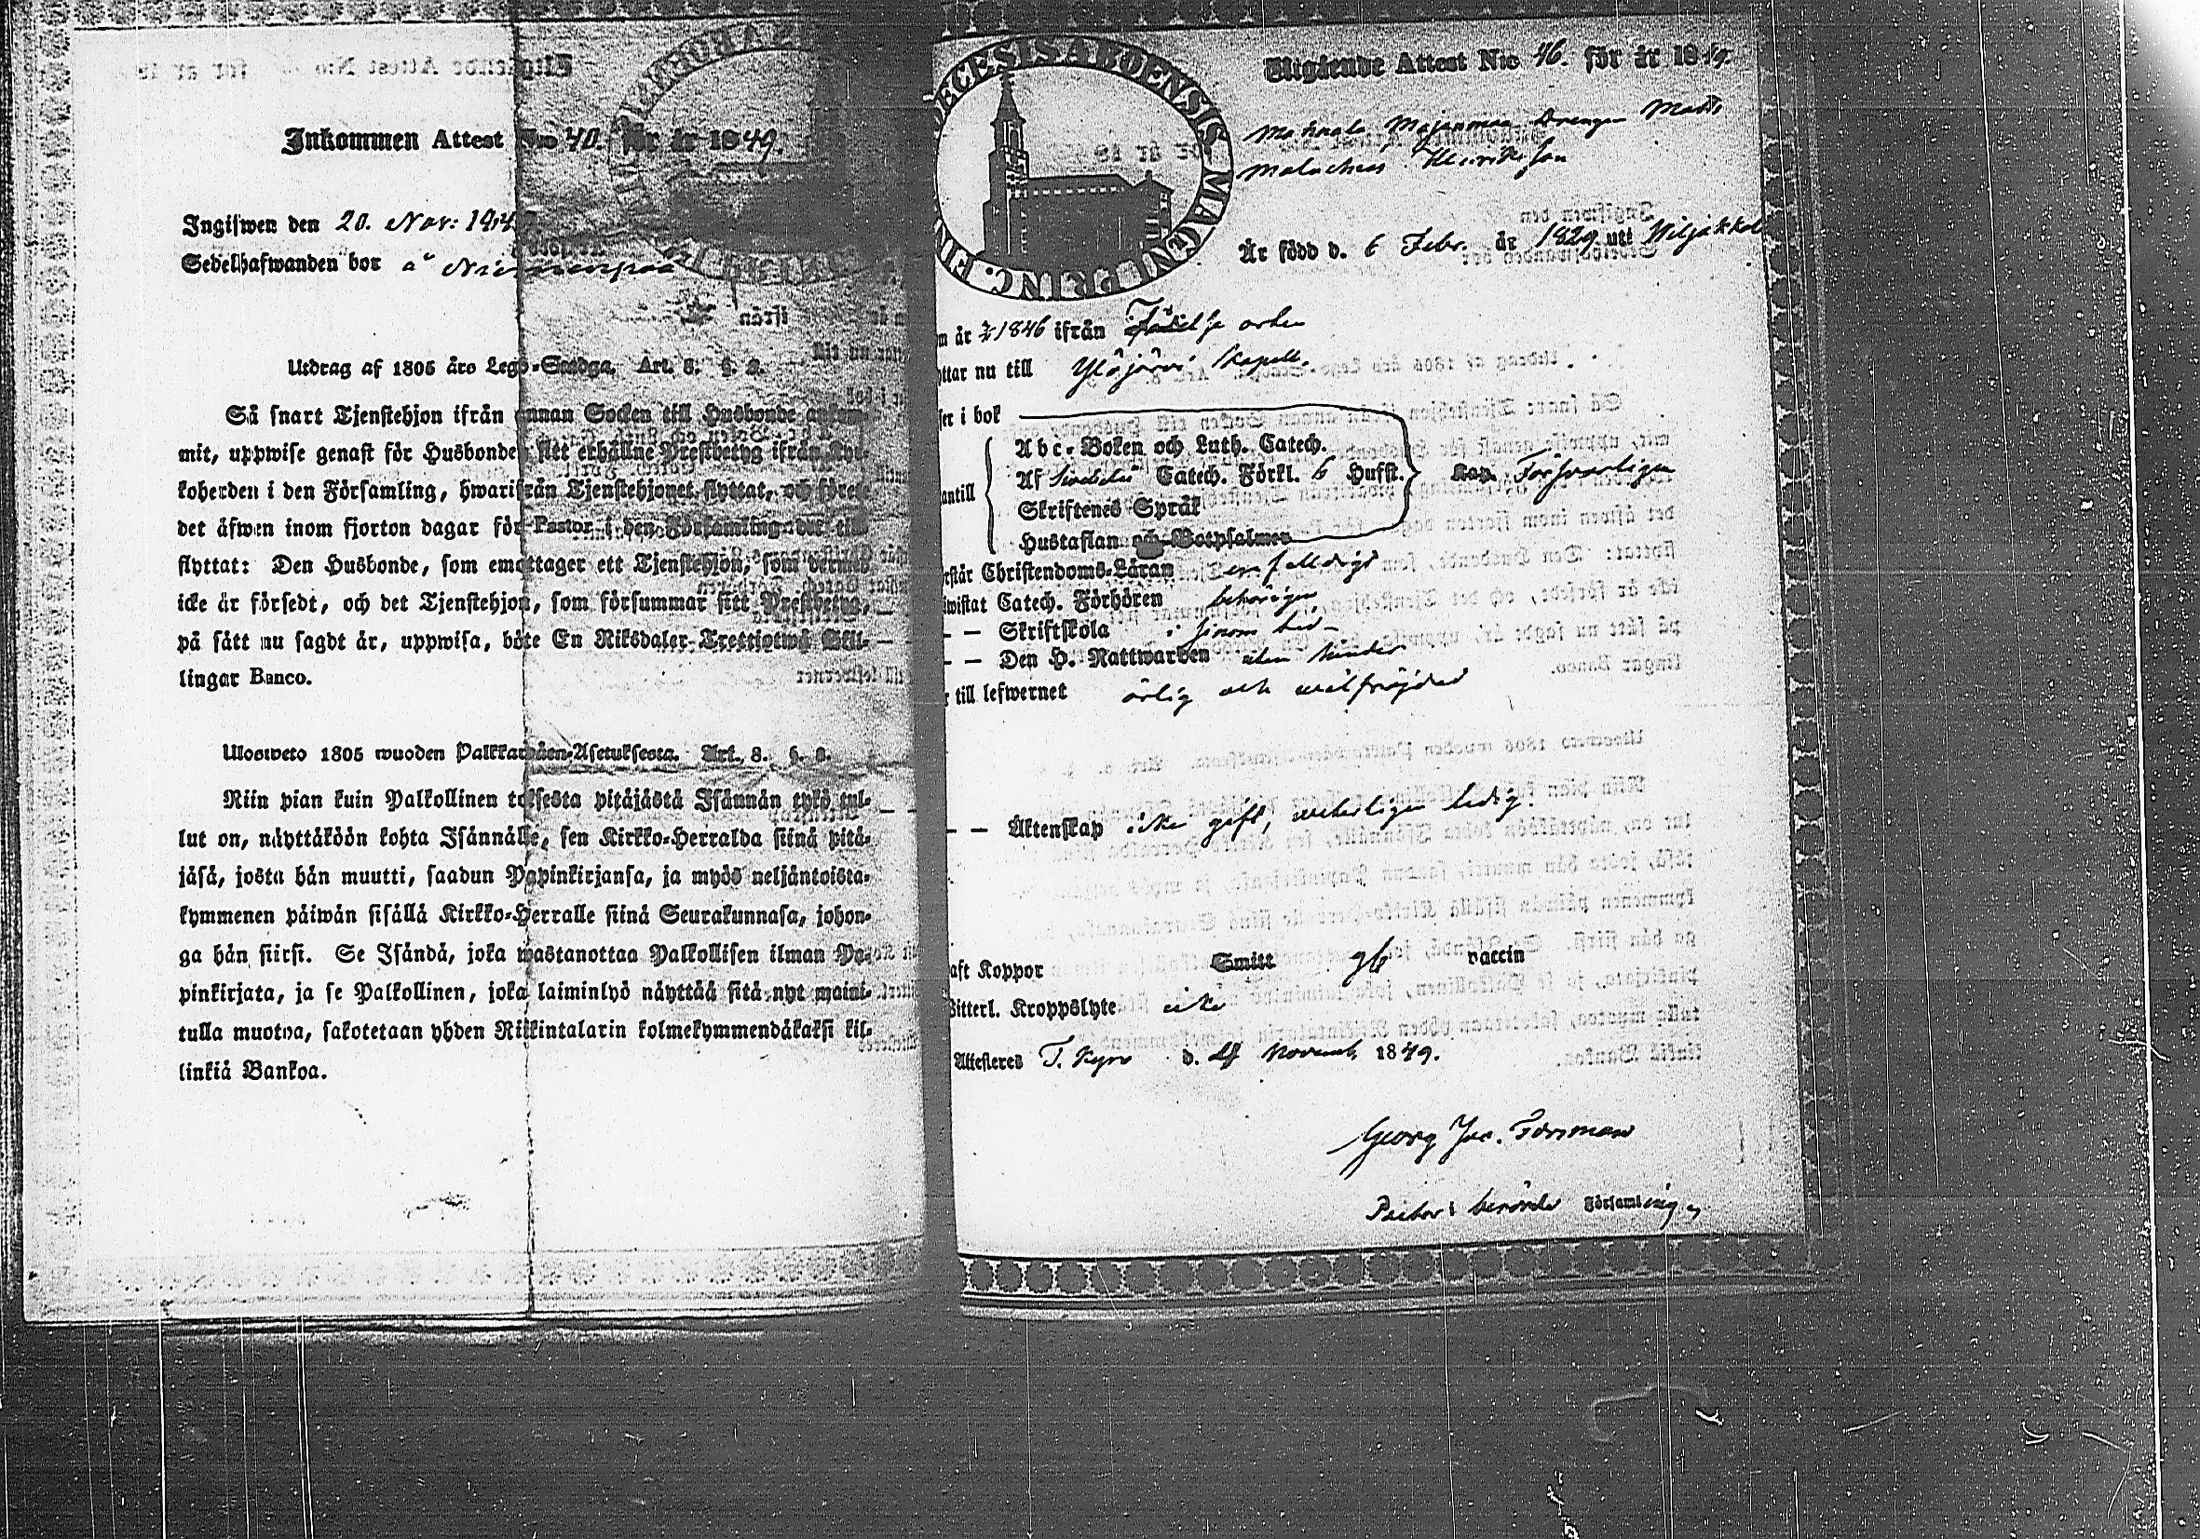 Inkommen Attest N:o 40. för år 1849.
Ingifwen den 20. Nov: 184
Sedelhafwanden bor å Niemenpää
Utdrag af 1805 års Lego-Stadga, Art. 8. §. 8.
Så snart Tjenstehjon ifrån annan Socken till Husbonde ankom-
mit, uppwise genast för Husbonden sitt erhållne Prestbetyg ifrån Kyr-
koherden i den Församling, hwarifrån Tjenstehjonet flyttat, och förete
det äfwen inom fjorton dagar för Pastor i den Församling der till
flyttat: Den Husbonde, som emottager ett Tjenstehjon, som dermed
icke är försedt, och det Tjenstehjon, som försummar sitt Prestbetyg,
på sätt nu sagdt är, uppwisa, böte En Riksdaler Trettiotwå Skil-
lingar Banco.
Ulosweto 1805 wuoden Palkkawäen-Asetuksesta. Art. 8. §. 8.
Niin pian kuin Palkollinen toisesta pitäjästä Isännän tykö tul-
lut on, näyttäköön kohta Isännälle, sen Kirkko-Herralda siinä pitä-
jäsä, josta hän muutti, saadun Papinkirjansa, ja myös neljäntoista-
kymmenen päiwän sisällä Kirkko-Herralle siinä Seurakunnasa, johon-
ga hän siirsi. Se Isändä, joka wastanottaa Palkollisen ilman Pa-
pinkirjata, ja se Palkollinen, joka laiminlyö näyttää sitä nyt mainit-
tulla muotoa, sakotetaan yhden Riikintalarin kolmekymmendäkaksi kil-
linkiä Bankoa.
DIOECESIS ABOENSIS MAGNI PRINC. FIN
Utgående Attest N:o 46. för år 1849.
Mannala Majanmaa Drengen Matts
Malachias Henriksson
Är född d. 6 Febr. år 1829 uti Wiljakkala
n år 1846 ifrån Födelse orten
yttar nu till Ylöjärvi Kapell.
ser i bok
Abc-Boken och Luth. Catech.
antill
Af Svebelii Catech. Förkl. 6 Hufst. Försvarligen
Skriftenes Språk
Hustaflan och Botpsalmer
rstår Christendoms-Läran enfaldigt
iwistat Catech. Förhören behörigen
— — Skriftskola i sinom tid
— — Den H. Nattwarden utan hinder
r till lefwernet ärlig och wälfräjdad
— — Äktenskap icke gift, veterligen ledig.
aft Koppor Smitt gb vaccin
Witterl. Kroppslyte icke
Attesteres T. Kyro d. November 1849.
Georg Jac. Forsman
Pastor i berörde Församling